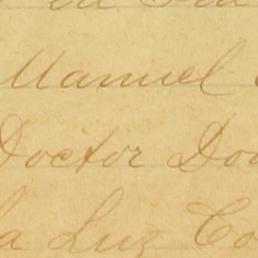 Manuel
Doctor Don
la Luz Co